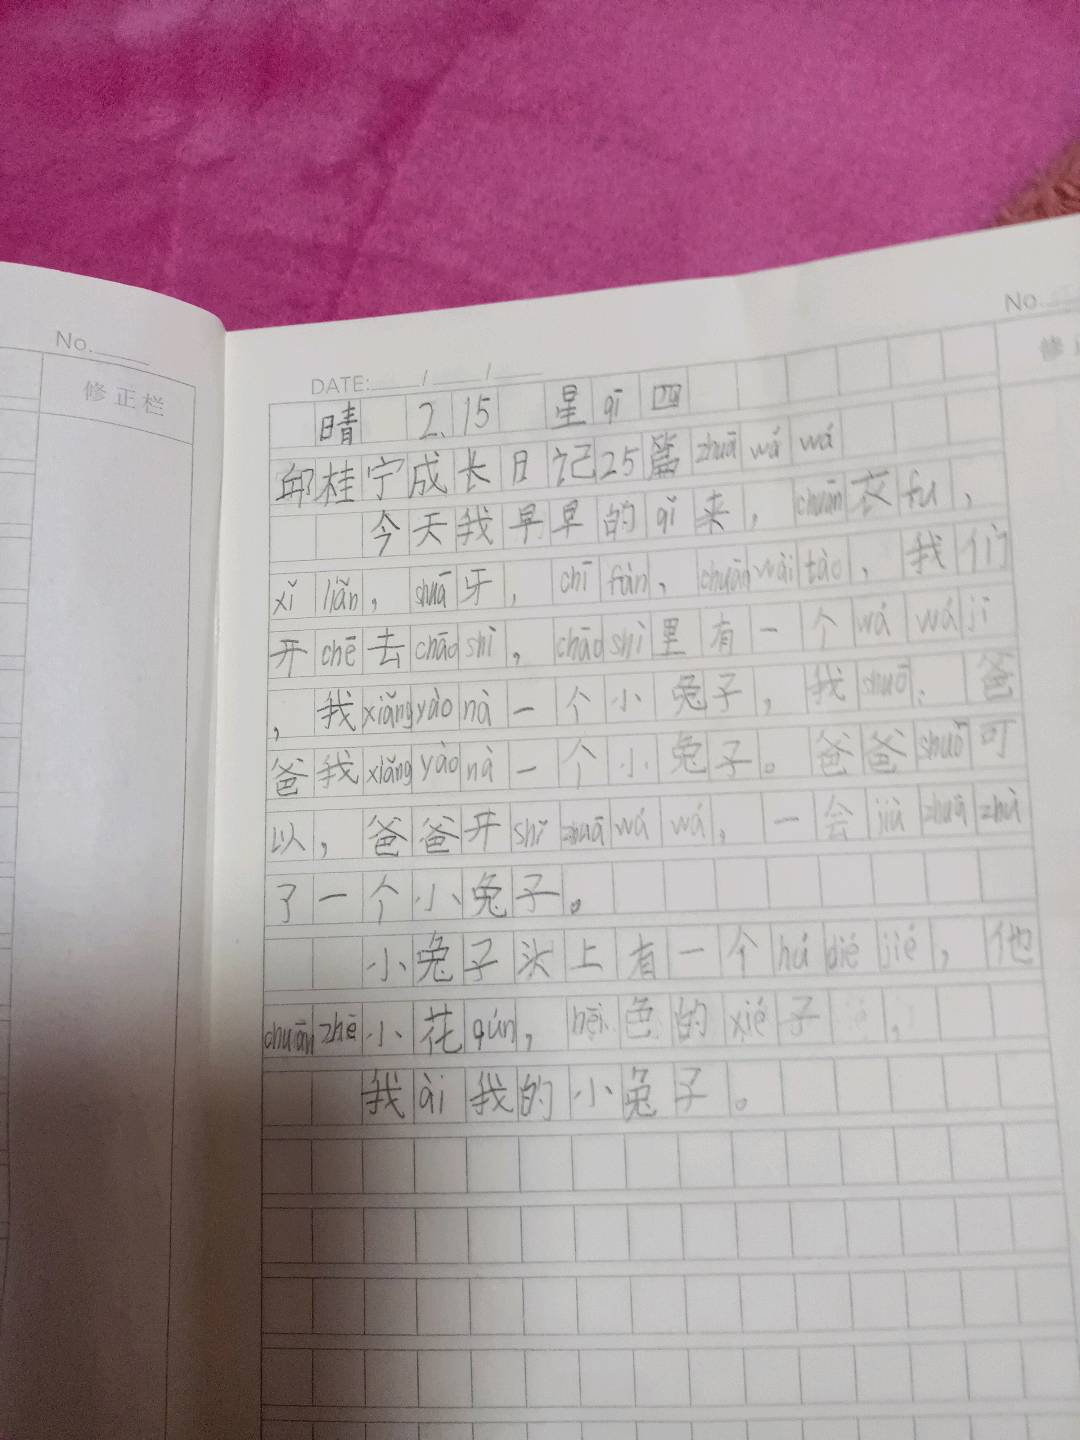 No.
修正栏
No.
修
DATE: / /
晴 2.15 星qī四
邱桂宁成长日记25篇zhuā wá wá
今天我早早的qǐ来，chuān衣fu，
xǐ liǎn，shuā牙，chī fàn，chuān wài tào，我们
开chē去chāo shì，chāo shì里有一个wá wá jī
，我xiǎng yào nà一个小兔子，我shuō：爸
爸我xiǎng yào nà一个小兔子。爸爸shuō可
以，爸爸开shǐ zhuā wá wá，一会jiù zhuā zhù
了一个小兔子。
小兔子头上有一个hú dié jié，他
chuān zhē小花qún，hēi色的xié子，
我ài我的小兔子。